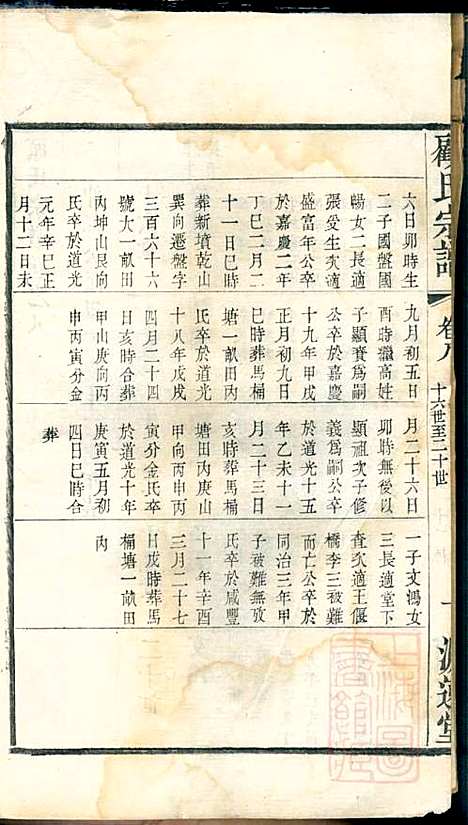 顧氏宗譜
卷八
十六世至二十世
一
源遠堂
六日卯時生
二子國盤國
暢女二長適
張受生次適
盛富年公卒
於嘉慶二年
丁巳二月二
十一日巳時
葬新墳乾山
巽向遷盤字
三百六十六
號大一畝田
丙坤山艮向
氏卒於道光
元年辛巳正
月十二日未
九月初五日
酉時繼高姓
子顯賚爲嗣
公卒於嘉慶
十九年甲戌
正月初九日
巳時葬馬桶
塘一畝田內
氏卒於道光
十八年戊戌
四月二十四
日亥時合葬
甲山庚向兼
申丙寅分金
月二十六日
卯時無後以
顯祖次子修
義爲嗣公卒
於道光十五
年乙未十一
月二十三日
亥時葬馬桶
塘田內庚山
甲向丙申丙
寅分金氏卒
於道光十年
庚寅五月初
四日巳時合
葬
一子文鴻女
三長適堂下
查次適王偃
橋李三被難
而亡公卒於
同治三年甲
子被難無攷
氏卒於咸豐
十一年辛酉
三月二十七
日戌時葬馬
桶塘一畝田
內
上海圖書館藏